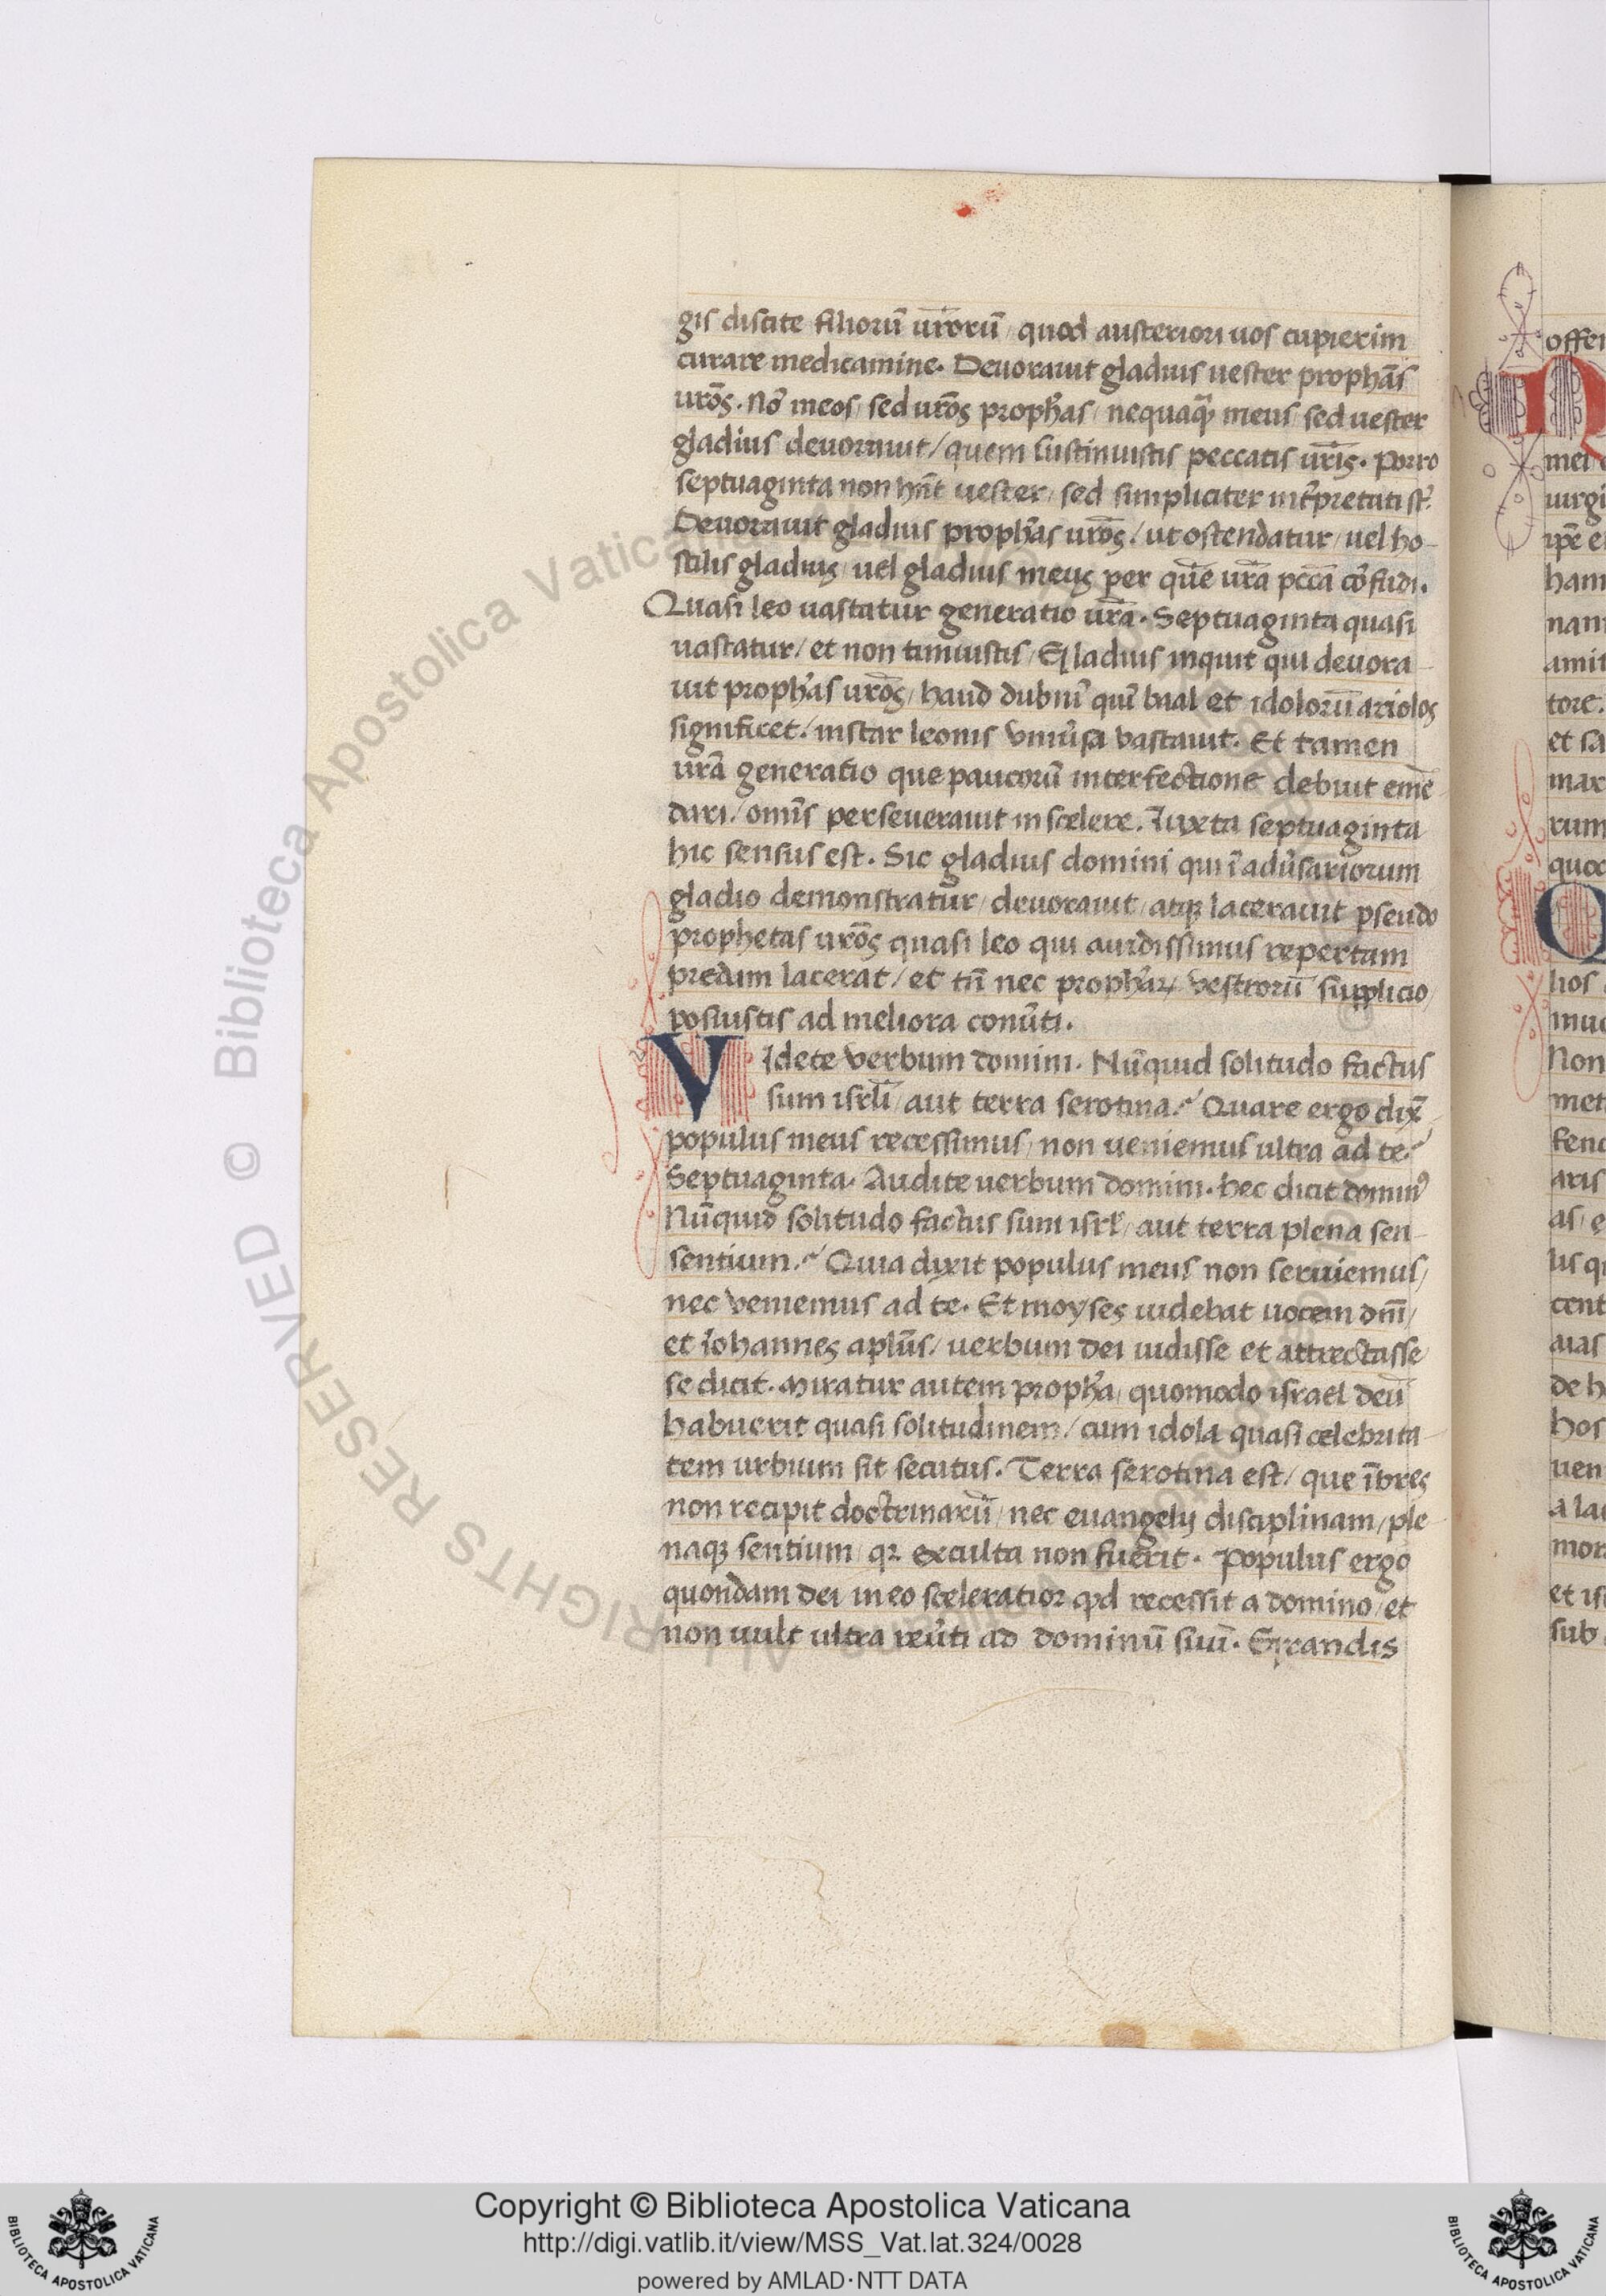 gis discite filiorū ur̄orū / quod austeriori uos cupierim
curare medicamine. Deuorauit gladius uester prophā̄s
ur̄os. Nō meos / sed ur̄os proph̄as / nequaq̄ meus / sed uester
gladius deuorauit / quem sustinuistis peccatis ur̄is. Porro
septuaginta non hn̄t uester / sed simpliciter int̄pretati st̄.
Deuorauit gladius proph̄as ur̄os / ut ostendatur / uel ho-
stilis gladius / uel gladius meus per quē ur̄a pcc̄a cōfudi.
Quasi leo uastatur generatio ur̄a. Septuaginta quasi
uastatur / et non timuistis / Gladius inquit qui deuora-
uit proph̄as ur̄os / haud dubiū qui baal et idolorū ariolos
significet / instar leonis vniūsa vastauit. Et tamen
ur̄a generatio que paucorū interfectione debuit emē-
dari / omīs perseuerauit in scelere. Iuxta septuaginta
hic sensus est. Sic gladius domini qui ī adūsariorum
gladio demonstratur / deuorauit / atqꝫ lacerauit pseudo
prophetas ur̄os quasi leo qui auidissimus repertam
predam lacerat / et tn̄ nec proph̄aꝝ vestrorū supplicio /
potuistis ad meliora conūti.
Videte verbum domini. Nūquid solitudo factus
sum isrl̄i / aut terra serotina? Quare ergo dix̄
populus meus recessimus / non ueniemus ultra ad te?
Septuaginta. Audite uerbum domini. hec dicit dominꝰ
Nūquid solitudo factus sum isrl̄ / aut terra plena sen-
sentium? Quia dixit populus meus non seruiemus /
nec veniemus ad te. Et moyses uidebat uocem dn̄i /
et iohannes aplūs / uerbum dei uidisse et attrectasse
se dicit. Miratur autem proph̄a / quomodo israel deū
habuerit quasi solitudinem / cum idola quasi celebrita-
tem urbium sit secutus. Terra serotina est / que ībres
non recipit doctrinarū / nec euangelij disciplinam / ple-
naqꝫ sentium / qꝛ exculta non fuerit. Populus ergo
quondam dei / in eo sceleratior qd recessit a domino / et
non uult ultra reūti ad dominū suū. Grandis
Copyright © Biblioteca Apostolica Vaticana
http://digi.vatlib.it/view/MSS_Vat.lat.324/0028
powered by AMLAD·NTT DATA